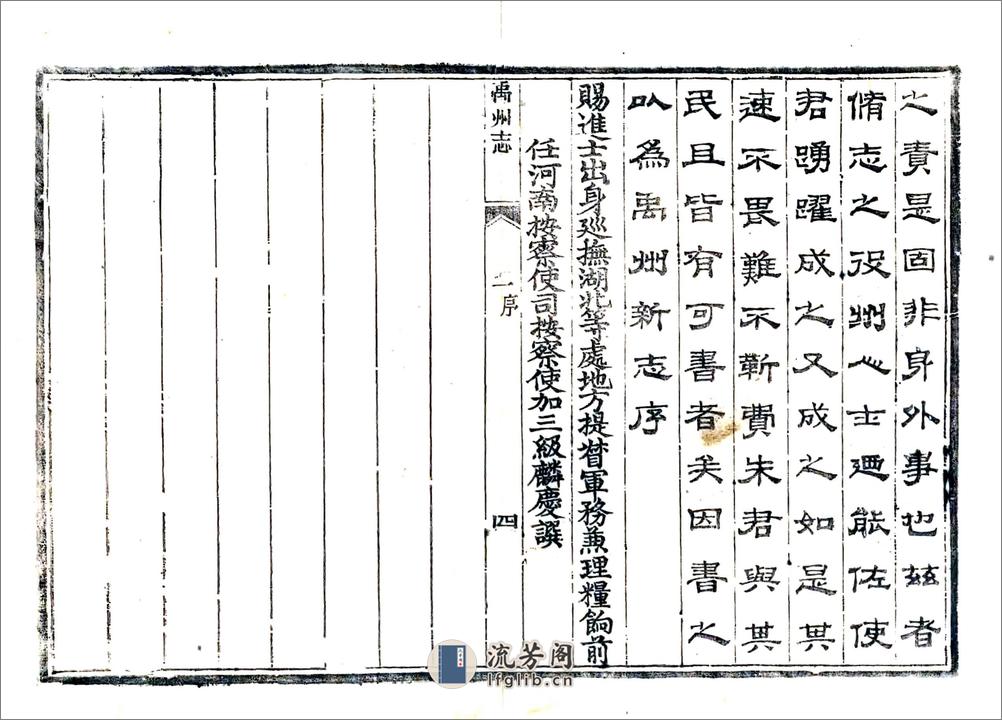 之責是固非身外事也茲者
脩志之役州人士迺能佐使
君踴躍成之又成之如是其
速不畏難不靳費朱君與其
民且皆有可書者矣因書之
以為禹州新志序
賜進士出身廵撫湖北等處地方提督軍務兼理糧餉前
任河南按察使司按察使加三級麟慶譔
禹州志
序
四
流芳阁
lfglib.cn